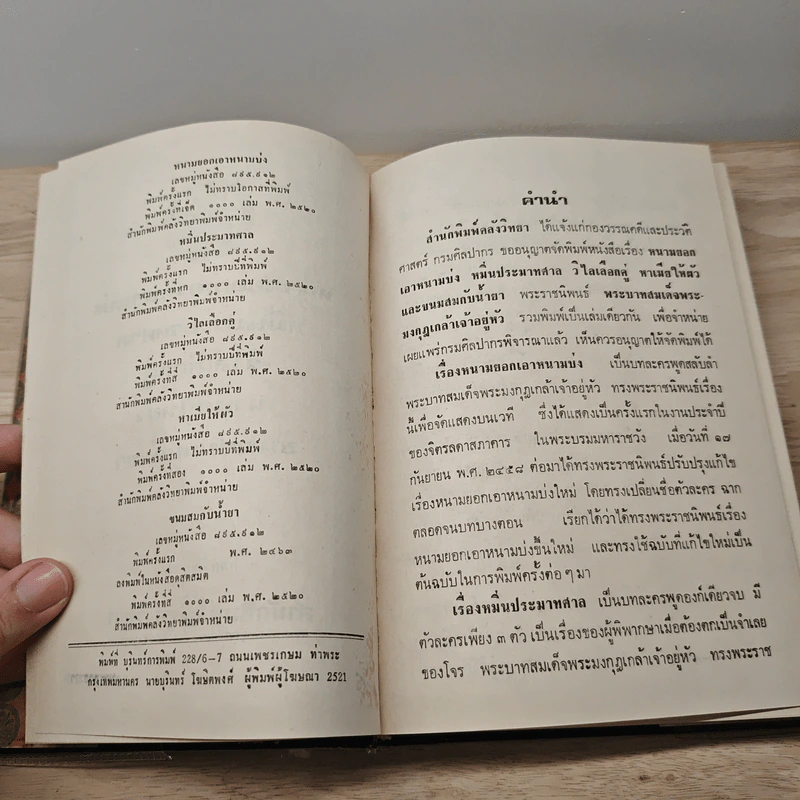 หนามยอกเอาหนามบ่ง
เลขหมู่หนังสือ ๘๙๕.๙๑๒
พิมพ์ครั้งแรก ไม่ทราบโอกาสที่พิมพ์
พิมพ์ครั้งที่เจ็ด ๑๐๐๐ เล่ม พ.ศ. ๒๕๒๐
สำนักพิมพ์คลังวิทยาพิมพ์จำหน่าย
หมิ่นประมาทศาล
เลขหมู่หนังสือ ๘๙๕.๙๑๒
พิมพ์ครั้งแรก ไม่ทราบปีที่พิมพ์
พิมพ์ครั้งที่หก ๑๐๐๐ เล่ม พ.ศ. ๒๕๒๐
สำนักพิมพ์คลังวิทยาพิมพ์จำหน่าย
วิไลเลือกคู่
เลขหมู่หนังสือ ๘๙๕.๙๑๒
พิมพ์ครั้งแรก ไม่ทราบปีที่พิมพ์
พิมพ์ครั้งที่สี่ ๑๐๐๐ เล่ม พ.ศ. ๒๕๒๐
สำนักพิมพ์คลังวิทยาพิมพ์จำหน่าย
หาเมียให้ผัว
เลขหมู่หนังสือ ๘๙๕.๙๑๒
พิมพ์ครั้งแรก ไม่ทราบปีที่พิมพ์
พิมพ์ครั้งที่สอง ๑๐๐๐ เล่ม พ.ศ. ๒๕๒๐
สำนักพิมพ์คลังวิทยาพิมพ์จำหน่าย
ขนมสมกับน้ำยา
เลขหมู่หนังสือ ๘๙๕.๙๑๒
พิมพ์ครั้งแรก พ.ศ. ๒๔๖๓
ลงพิมพ์ในหนังสือดุสิตสมิต
พิมพ์ครั้งที่สี่ ๑๐๐๐ เล่ม พ.ศ. ๒๕๒๐
สำนักพิมพ์คลังวิทยาพิมพ์จำหน่าย
พิมพ์ที่ บุรินทร์การพิมพ์ 228/6-7 ถนนเพชรเกษม ท่าพระ
กรุงเทพมหานคร นายบุรินทร์ โฆษิตพงศ์ ผู้พิมพ์ผู้โฆษณา 2521
คำนำ
สำนักพิมพ์คลังวิทยา ได้แจ้งแก่กองวรรณคดีและประวัติ
ศาสตร์ กรมศิลปากร ขออนุญาตจัดพิมพ์หนังสือเรื่อง หนามยอก
เอาหนามบ่ง หมิ่นประมาทศาล วิไลเลือกคู่ หาเมียให้ผัว
และขนมสมกับน้ำยา พระราชนิพนธ์ พระบาทสมเด็จพระ-
มงกุฎเกล้าเจ้าอยู่หัว รวมพิมพ์เป็นเล่มเดียวกัน เพื่อจำหน่าย
เผยแพร่กรมศิลปากรพิจารณาแล้ว เห็นควรอนุญาตให้จัดพิมพ์ได้
เรื่องหนามยอกเอาหนามบ่ง เป็นบทละครพูดสลับลำ
พระบาทสมเด็จพระมงกุฎเกล้าเจ้าอยู่หัว ทรงพระราชนิพนธ์เรื่อง
นี้เพื่อจัดแสดงบนเวที ซึ่งได้แสดงเป็นครั้งแรกในงานประจำปี
ของจิตรลดาสภาคาร ในพระบรมมหาราชวัง เมื่อวันที่ ๑๗
กันยายน พ.ศ. ๒๔๕๘ ต่อมาได้ทรงพระราชนิพนธ์ปรับปรุงแก้ไข
เรื่องหนามยอกเอาหนามบ่งใหม่ โดยทรงเปลี่ยนชื่อตัวละคร ฉาก
ตลอดจนบทบางตอน เรียกได้ว่าได้ทรงพระราชนิพนธ์เรื่อง
หนามยอกเอาหนามบ่งขึ้นใหม่ และทรงใช้ฉบับที่แก้ไขใหม่เป็น
ต้นฉบับในการพิมพ์ครั้งต่อ ๆ มา
เรื่องหมิ่นประมาทศาล เป็นบทละครพูดองก์เดียวจบ มี
ตัวละครเพียง ๓ ตัว เป็นเรื่องของผู้พิพากษาเมื่อต้องตกเป็นจำเลย
ของโจร พระบาทสมเด็จพระมงกุฎเกล้าเจ้าอยู่หัว ทรงพระราช